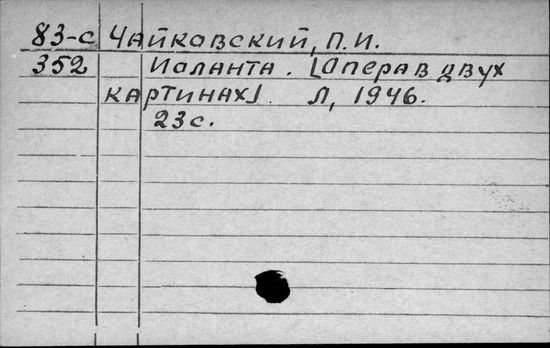 83-с Чайковский, П.И.
352 Иоланта. [Опера в двух
картинах]. Л, 1946.
23с.